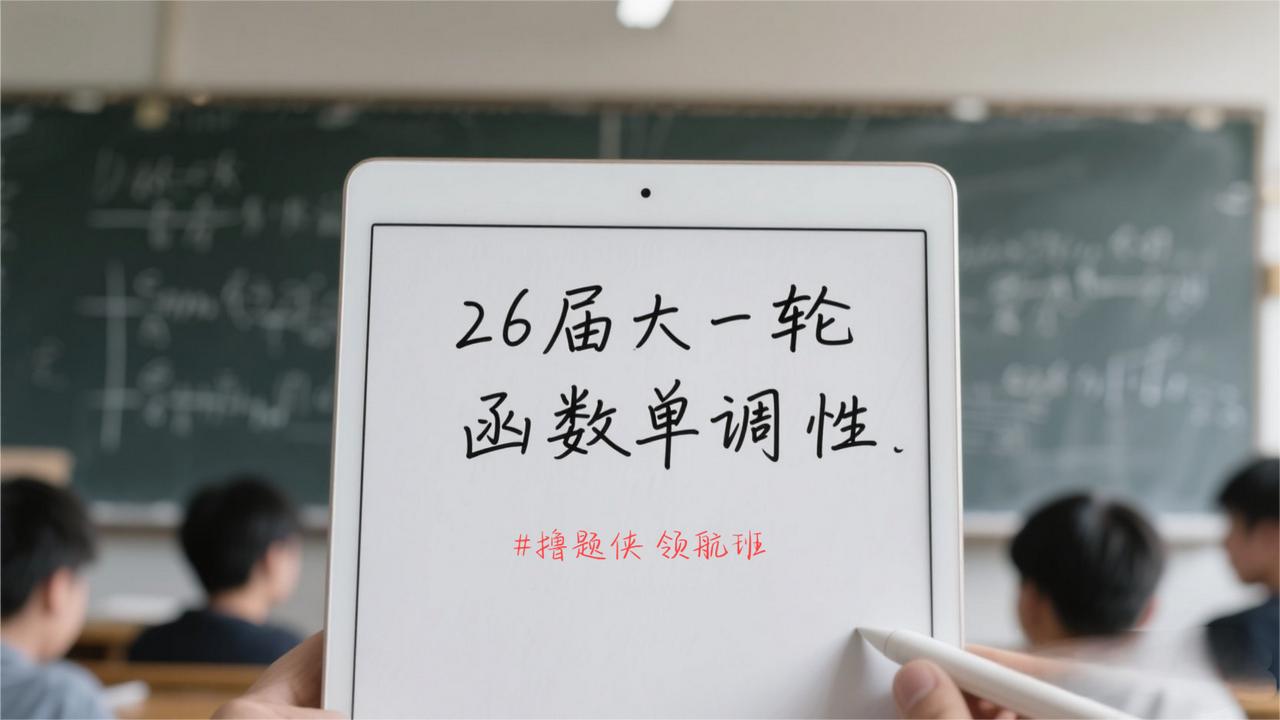 26届大一轮
函数单调性.
#撸题侠 领航班